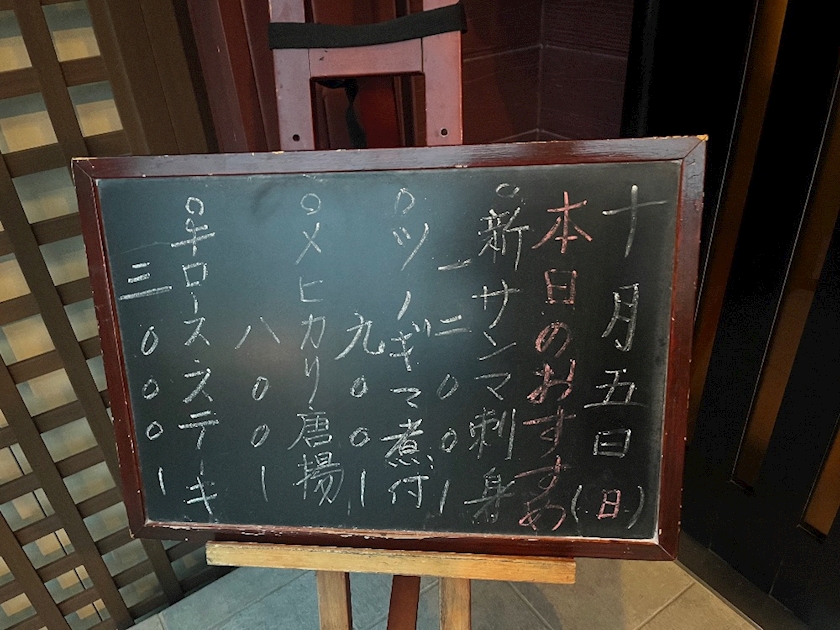 十月五日(日)
本日のおすすめ
○新サンマ刺身
一二〇〇ー
○ツノギマ煮付
九〇〇ー
○メヒカリ唐揚
八〇〇ー
○牛ロースステーキ
三〇〇〇ー